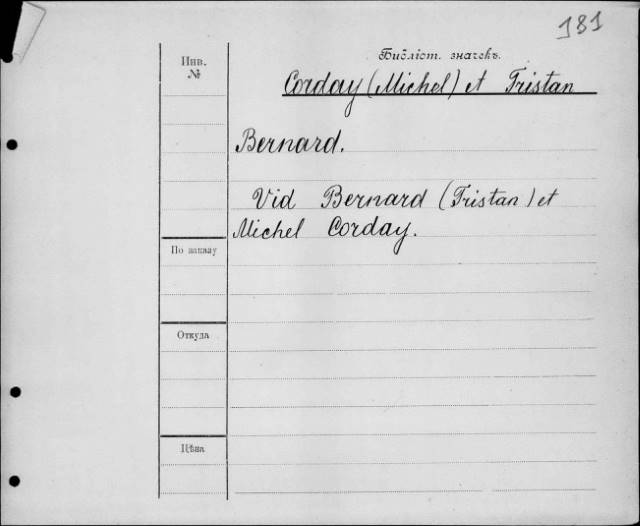 181
Инв.
№
Библіот. значекъ.
Corday (Michel) et Tristan
Bernard.
Vid Bernard (Tristan) et
Michel Corday.
По заказу
Откуда
Цѣна